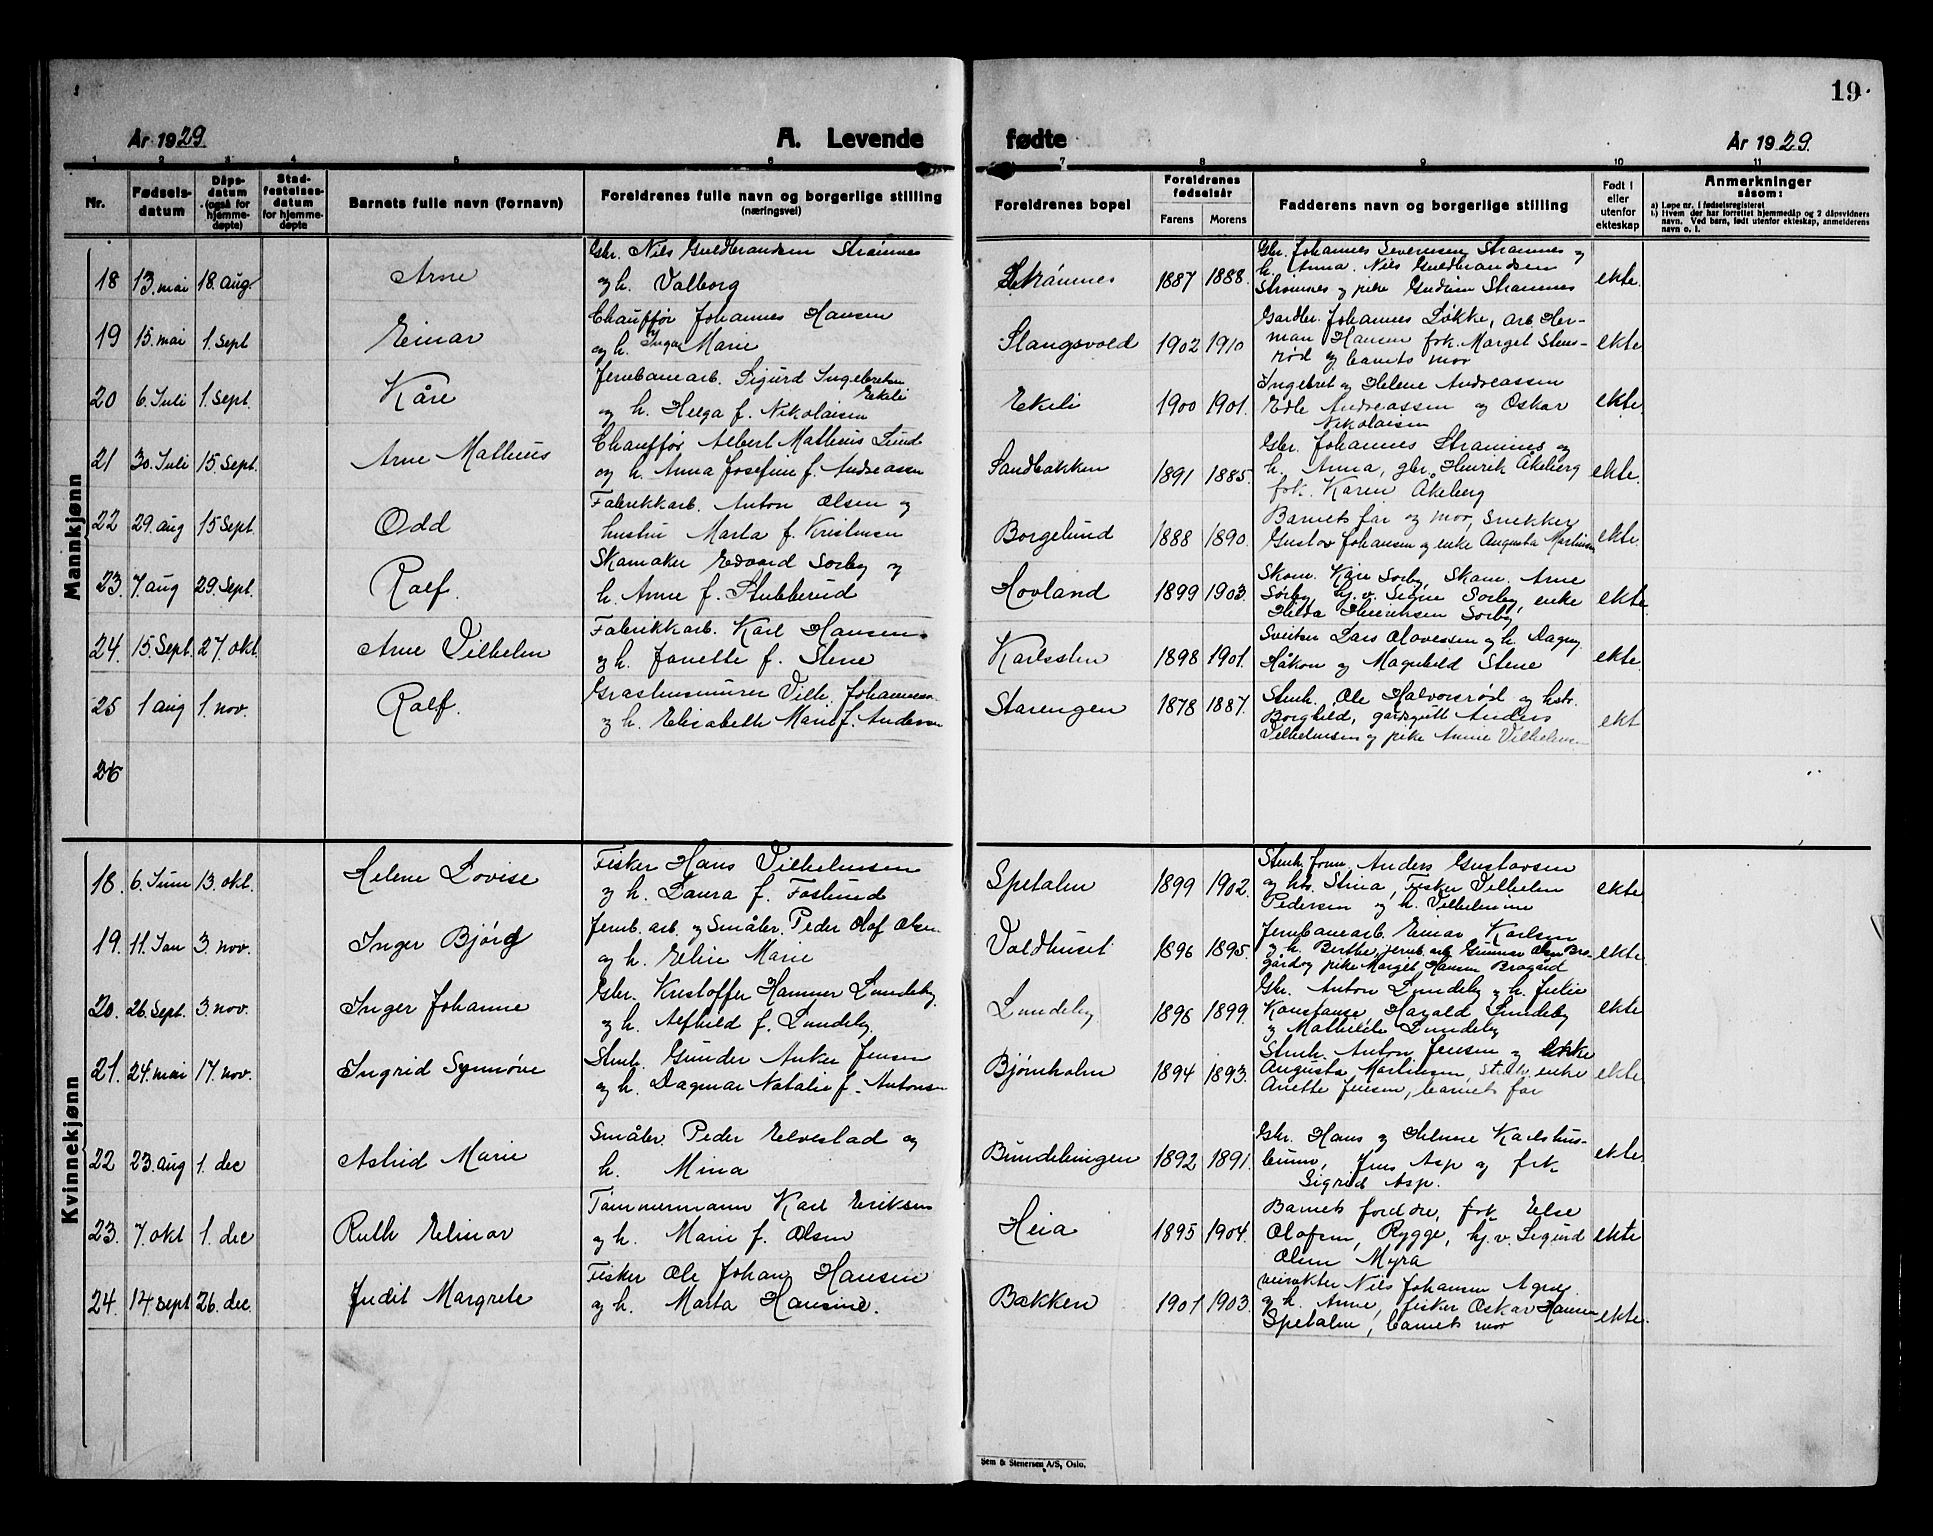 19.
År 1929.
A. Levende
fødte
År 1929.
1 2 3 4 5 6 7 8 9 10 11
Nr.
Fødsels-
datum
Dåps-
datum
(også for
hjemme-
døpte)
Stad-
festelses-
datum
for hjemme-
døpte
Barnets fulle navn (fornavn)
Foreldrenes fulle navn og borgerlige stilling
(næringsvei)
Foreldrenes bopel
Foreldrenes
fødselsår
Farens
Morens
Fadderens navn og borgerlige stilling
Født i
eller
utenfor
ekteskap
Anmerkninger
såsom:
a) Løpe nr. i fødselsregisteret
b) Hvem der har forrettet hjemmedåp og 2 dåpsvidners
navn. Ved barn, født utenfor ekteskap, anmelderens
navn o. l.
Mannkjønn
18 13. mai 18. aug. Arne
Gbr. Nils Guldbrandsen Strømnes
og h. Valborg
Strømnes 1887 1888.
Gbr. Johannes Severinsen Strømnes og
h. Anna. Nils Guldbrandsen
Strømnes og pike Gudrun Strømnes
ekte.
19 15. mai 1. sept Einar
Chauffør Johannes Hansen
og h. Inga Marie
Slangsvold 1902 1910
Gardbr. Johannes Løkke, arb. Her-
man Hansen frk. Margit Stens-
rød og barnets mor
ekte
20 6. Juli 1. Sept. Kåre
Jernbanearb. Sigurd Ingebretsen
Ekeli
og h. Helga f. Nikolaisen
Ekeli 1900 1901.
Ingebret og Helene Andreassen
Edle Andreassen og Oskar
Nikolaisen
ekte.
21 30. Juli 15 Sept. Arne Matheus
Chauffør Albert Matheus Lund
og h. Anna Josefine f. Andreassen
Sandbakken 1891 1885.
Gbr. Johannes Strømnes og
h. Anna, gbr. Henrik Åkeberg
frk. Karen Åkeberg
ekte.
22 29. aug 15 Sept. Odd
Fabrikkarb. Anton Olsen og
hustru Marta f. Kristensen
Borgelund 1888 1890.
Barnets far og mor, Snekker
Gustav Johansen og enke Augusta Martinsen
ekte.
23. 7 aug 29. Sept. Rolf.
Skomaker Edvard Sørby og
h. Anne f. Stubberud
Hovland 1899 1903.
Skom. Kåre Sørby, Skom. Arne
Sørby, hj. v. Signe Sørby, enke
Hilda Henriksen Sørby
ekte.
24. 15. Sept. 27. okt. Arne Vilhelm
Fabrikkarb. Karl Hansen
og h. Janette f. Stene
Karlssten 1898 1901.
Sveiser Lars Olavessen og h. Dagny
Håkon og Magnhild Stene
ekte.
25 1 aug 1. nov. Rolf.
Grashusmurer Vilh. Johannesen
og h. Elisabeth Marie f. Andersen
Starengen 1878 1887.
Stenh. Ole Halvorsrød og hstr.
Borghild, gårdsgutt Anders
Vilhelmsen og pike Annie Vilhelmsen
ekt
26
Kvinnekjønn
18. 6. Juni 13. okt. Helene Lovise
Fisker Hans Vilhelmsen
og h. Laura f. Foslund
Spetalen 1899 1902.
Stenh. form. Anders Gustavsen
og hs. Stina, Fisker Vilhelm
Pedersen og h. Vilhelmine
ekte
19. 11. Jan 3. nov. Inger Bjørg
Jernb. arb. og Småbr. Peder Olaf Olsen
og h. Eline Marie
Voldhuset 1896 1895.
Jernbanearb. Einar Karlsen
og h. Berthe, jernb. arb. Gunnar Olsen Bro-
gård og pike Margit Hansen Brogård
ekte.
20. 26. Sept. 3. nov. Inger Johanne
Gbr. Kristoffer Hammer Lundeby
og h. Alfhild f. Lundeby
Lundeby 1896 1899.
Gbr. Anton Lundeby og h. Julie
Konstanse, Harald Lundeby
og Mathilde Lundeby
ekte
21. 24. mai 17. nov. Ingrid Synnøve
Stenh. Gunder Anker Jensen
og h. Dagmar Natalie f. Antonsen
Bjørnholm 1894 1893.
Stenh. Anton Jensen og enke
Augusta Martinsen, enke
Anette Jensen, barnets far
ekte.
22 23. aug 1. dec Astrid Marie
Småbr. Peder Elvestad og
h. Mina
Bundebingen 1892 1891.
Gbr. Hans og Helene Karlshus-
bunn, Jens Asp og frk.
Sigrid Asp.
ekte.
23. 7. okt 1. dec Ruth Elinor
Tømmermann Karl Eriksen
og h. Marie f. Olsen
Heia 1895 1904.
Barnets foreldre, frk Else
Olafsen, Rygge, hj. v. Sigurd
Olsen Myra
ekte
24. 14. sept 26. dec. Judit Margrete
Fisker Ole Johan Hansen
og h. Marta Hansine.
Bakken 1901 1903.
Nils Johansen
og h. Anne, fisker Oskar Hansen
Spetalen, barnets mor
ekte.
Sem & Stenersen A/S, Oslo.